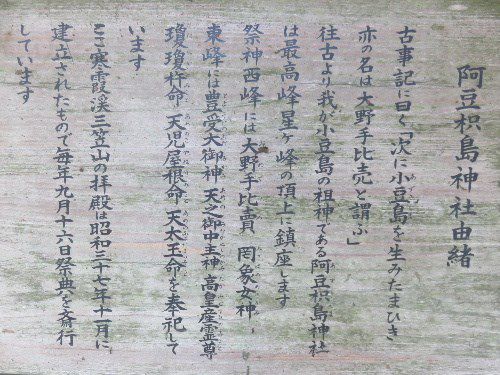 阿豆枳島神社由緒
古事記に曰く「次に小豆島を生みたまひき
亦の名は大野手比売と謂ふ」
往古より我が小豆島の祖神である阿豆枳島神社
は最高峰星ヶ峰の頂上に鎮座します
祭神西峰には大野手比賣 罔象女神
東峰には豊受大御神 天之御中主神 高皇産霊尊
瓊瓊杵命 天児屋根命 天太玉命を奉祀して
います
ここ寒霞渓三笠山の拝殿は昭和三十七年十一月に
建立されたもので毎年九月十六日祭典を斎行
しています